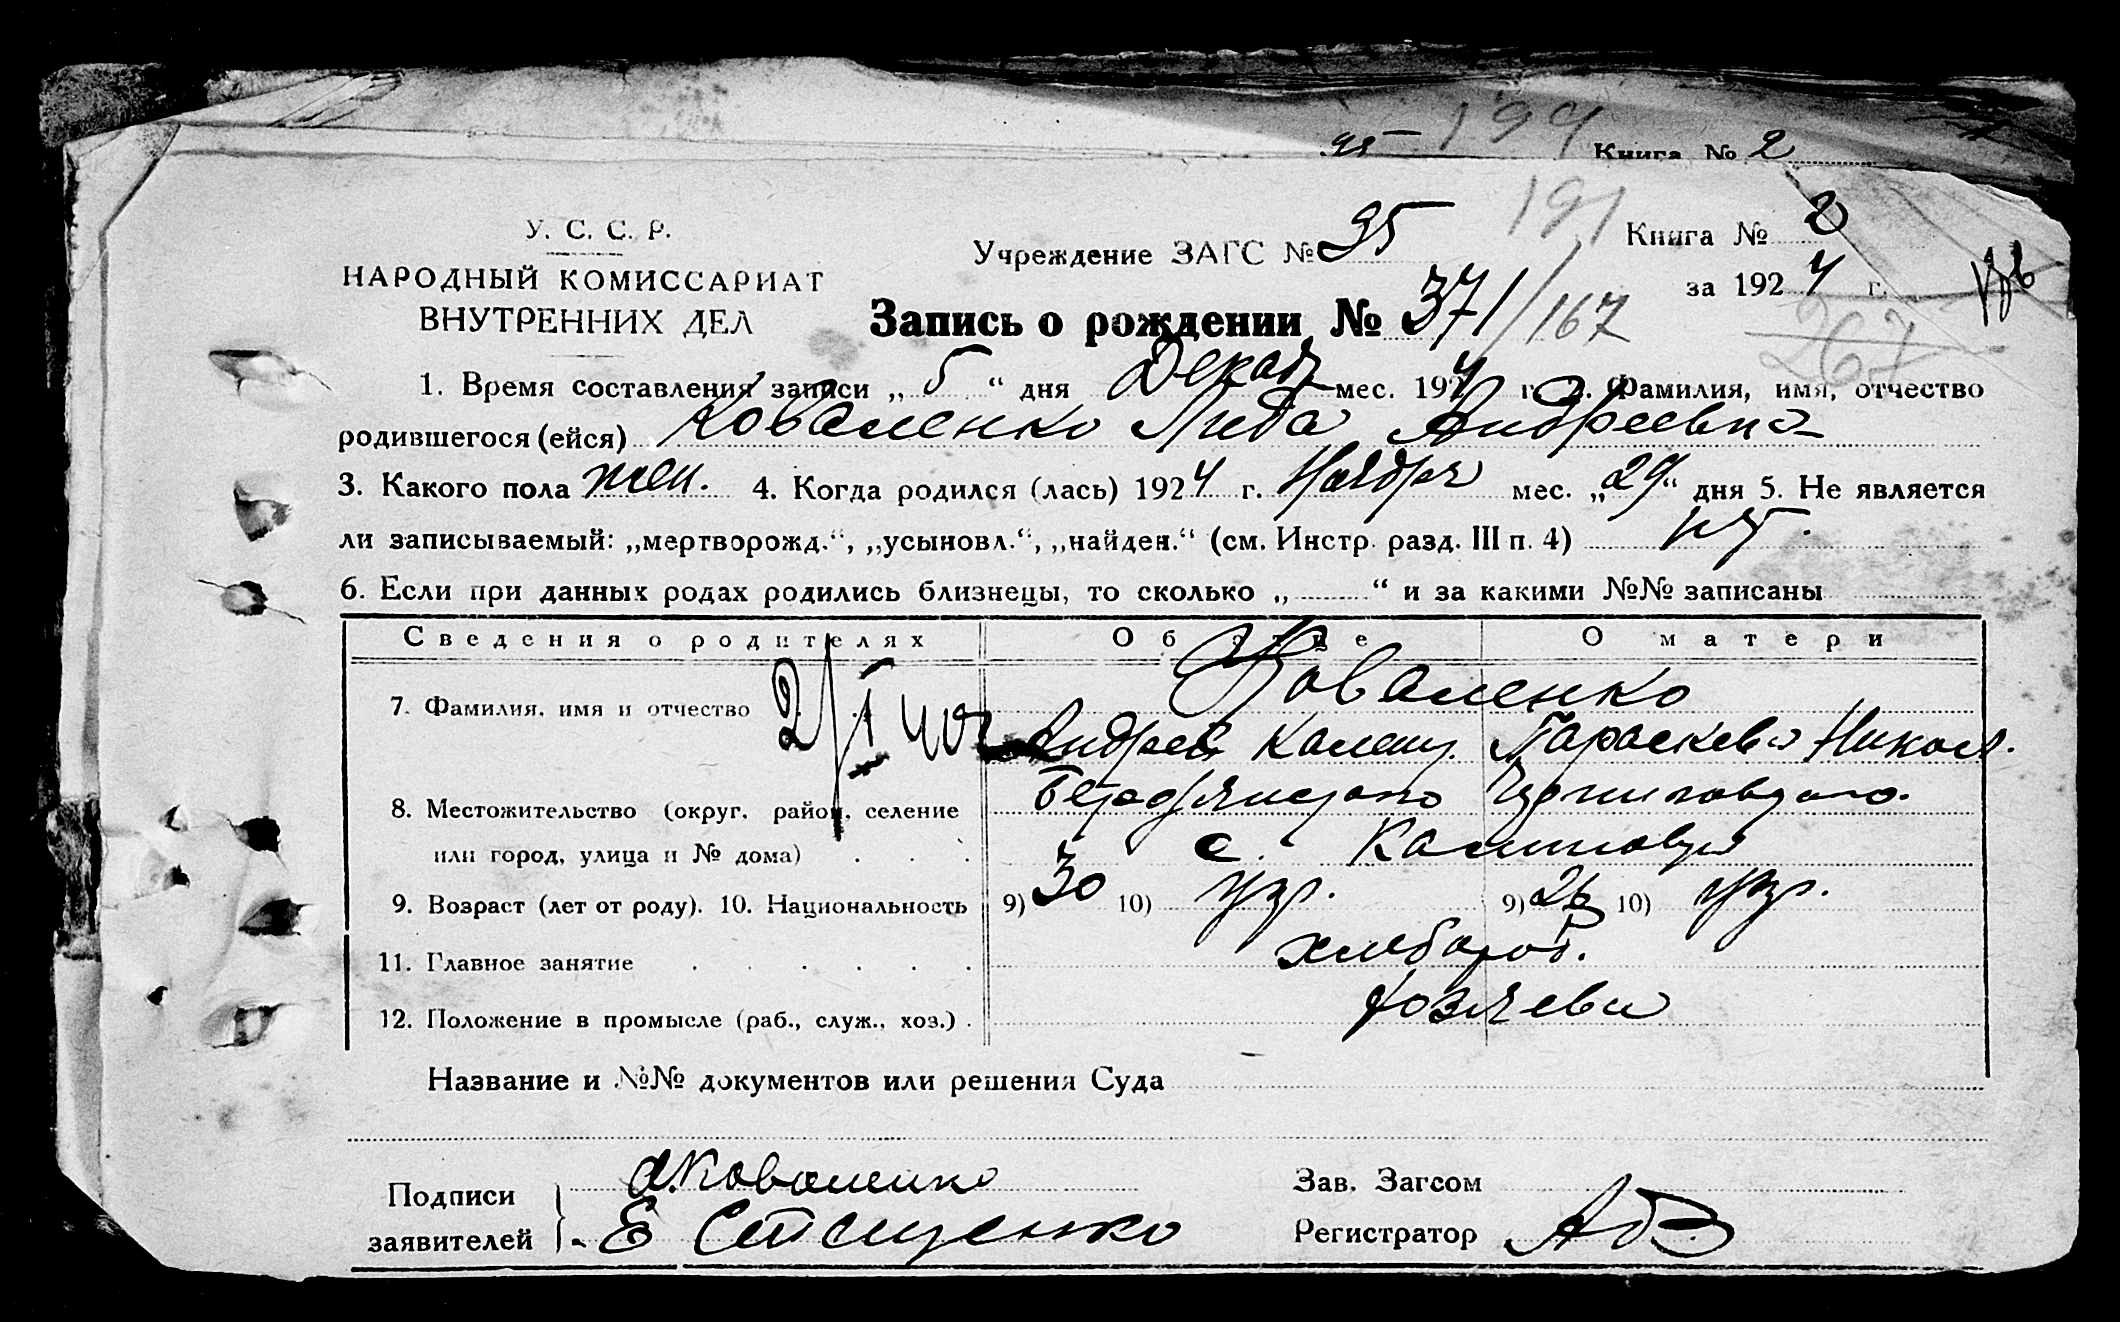 199
Книга № 2
У. С. С. Р.
НАРОДНЫЙ КОМИССАРИАТ
ВНУТРЕННИХ ДЕЛ
Учреждение ЗАГС № 35
191
Книга № 2
за 1924 г.
Запись о рождении № 371/167
267
1. Время составления записи „ 5 “ дня Декаб мес. 1924 г. 2. Фамилия, имя, отчество
родившегося (ейся) Коваленко Либа Андреевна
3. Какого пола жен. 4. Когда родился (лась) 1924 г. Ноября мес. „29“ дня 5. Не является
ли записываемый: „мертворожд.“, „усыновл.“, „найден.“ (см. Инстр. разд. III п. 4) нет.
6. Если при данных родах родились близнецы, то сколько „ “ и за какими №№ записаны
Сведения о родителях Об отце О матери
Коваленко
7. Фамилия, имя и отчество Андрей Парасковия Никол.
8. Местожительство (округ, район, селение
или город, улица и № дома) с.
9. Возраст (лет от роду). 10. Национальность 9) 30 10) укр. 9) 26 10) укр.
11. Главное занятие хлебороб.
12. Положение в промысле (раб., служ., хоз.) хозяева
Название и №№ документов или решения Суда
Подписи
заявителей
А. Коваленко
Е Стеценко
Зав. Загсом
Регистратор